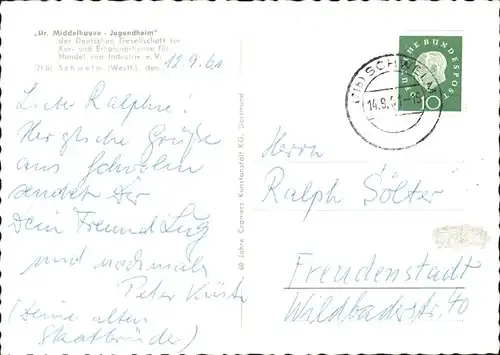 „Dr. Middelhauve - Jugendheim"
der Deutschen Gesellschaft für
Kur- und Erholungsheime für
Handel und Industrie e.V.
(21b) Schwelm (Westf.), den 12.9.60
Lieber Ralph!
Herzliche Grüße
aus Schwelm
sendet Dir
Dein Freund
und nochmals
Peter
(Deine alten
Skatbrüder)
60 Jahre Cramers Kunstanstalt KG, Dortmund
(21b) SCHWELM
14.9.
DEUTSCHE BUNDESPOST
10
Herrn
Ralph Sölter
Freudenstadt
Wildbaderstr. 40